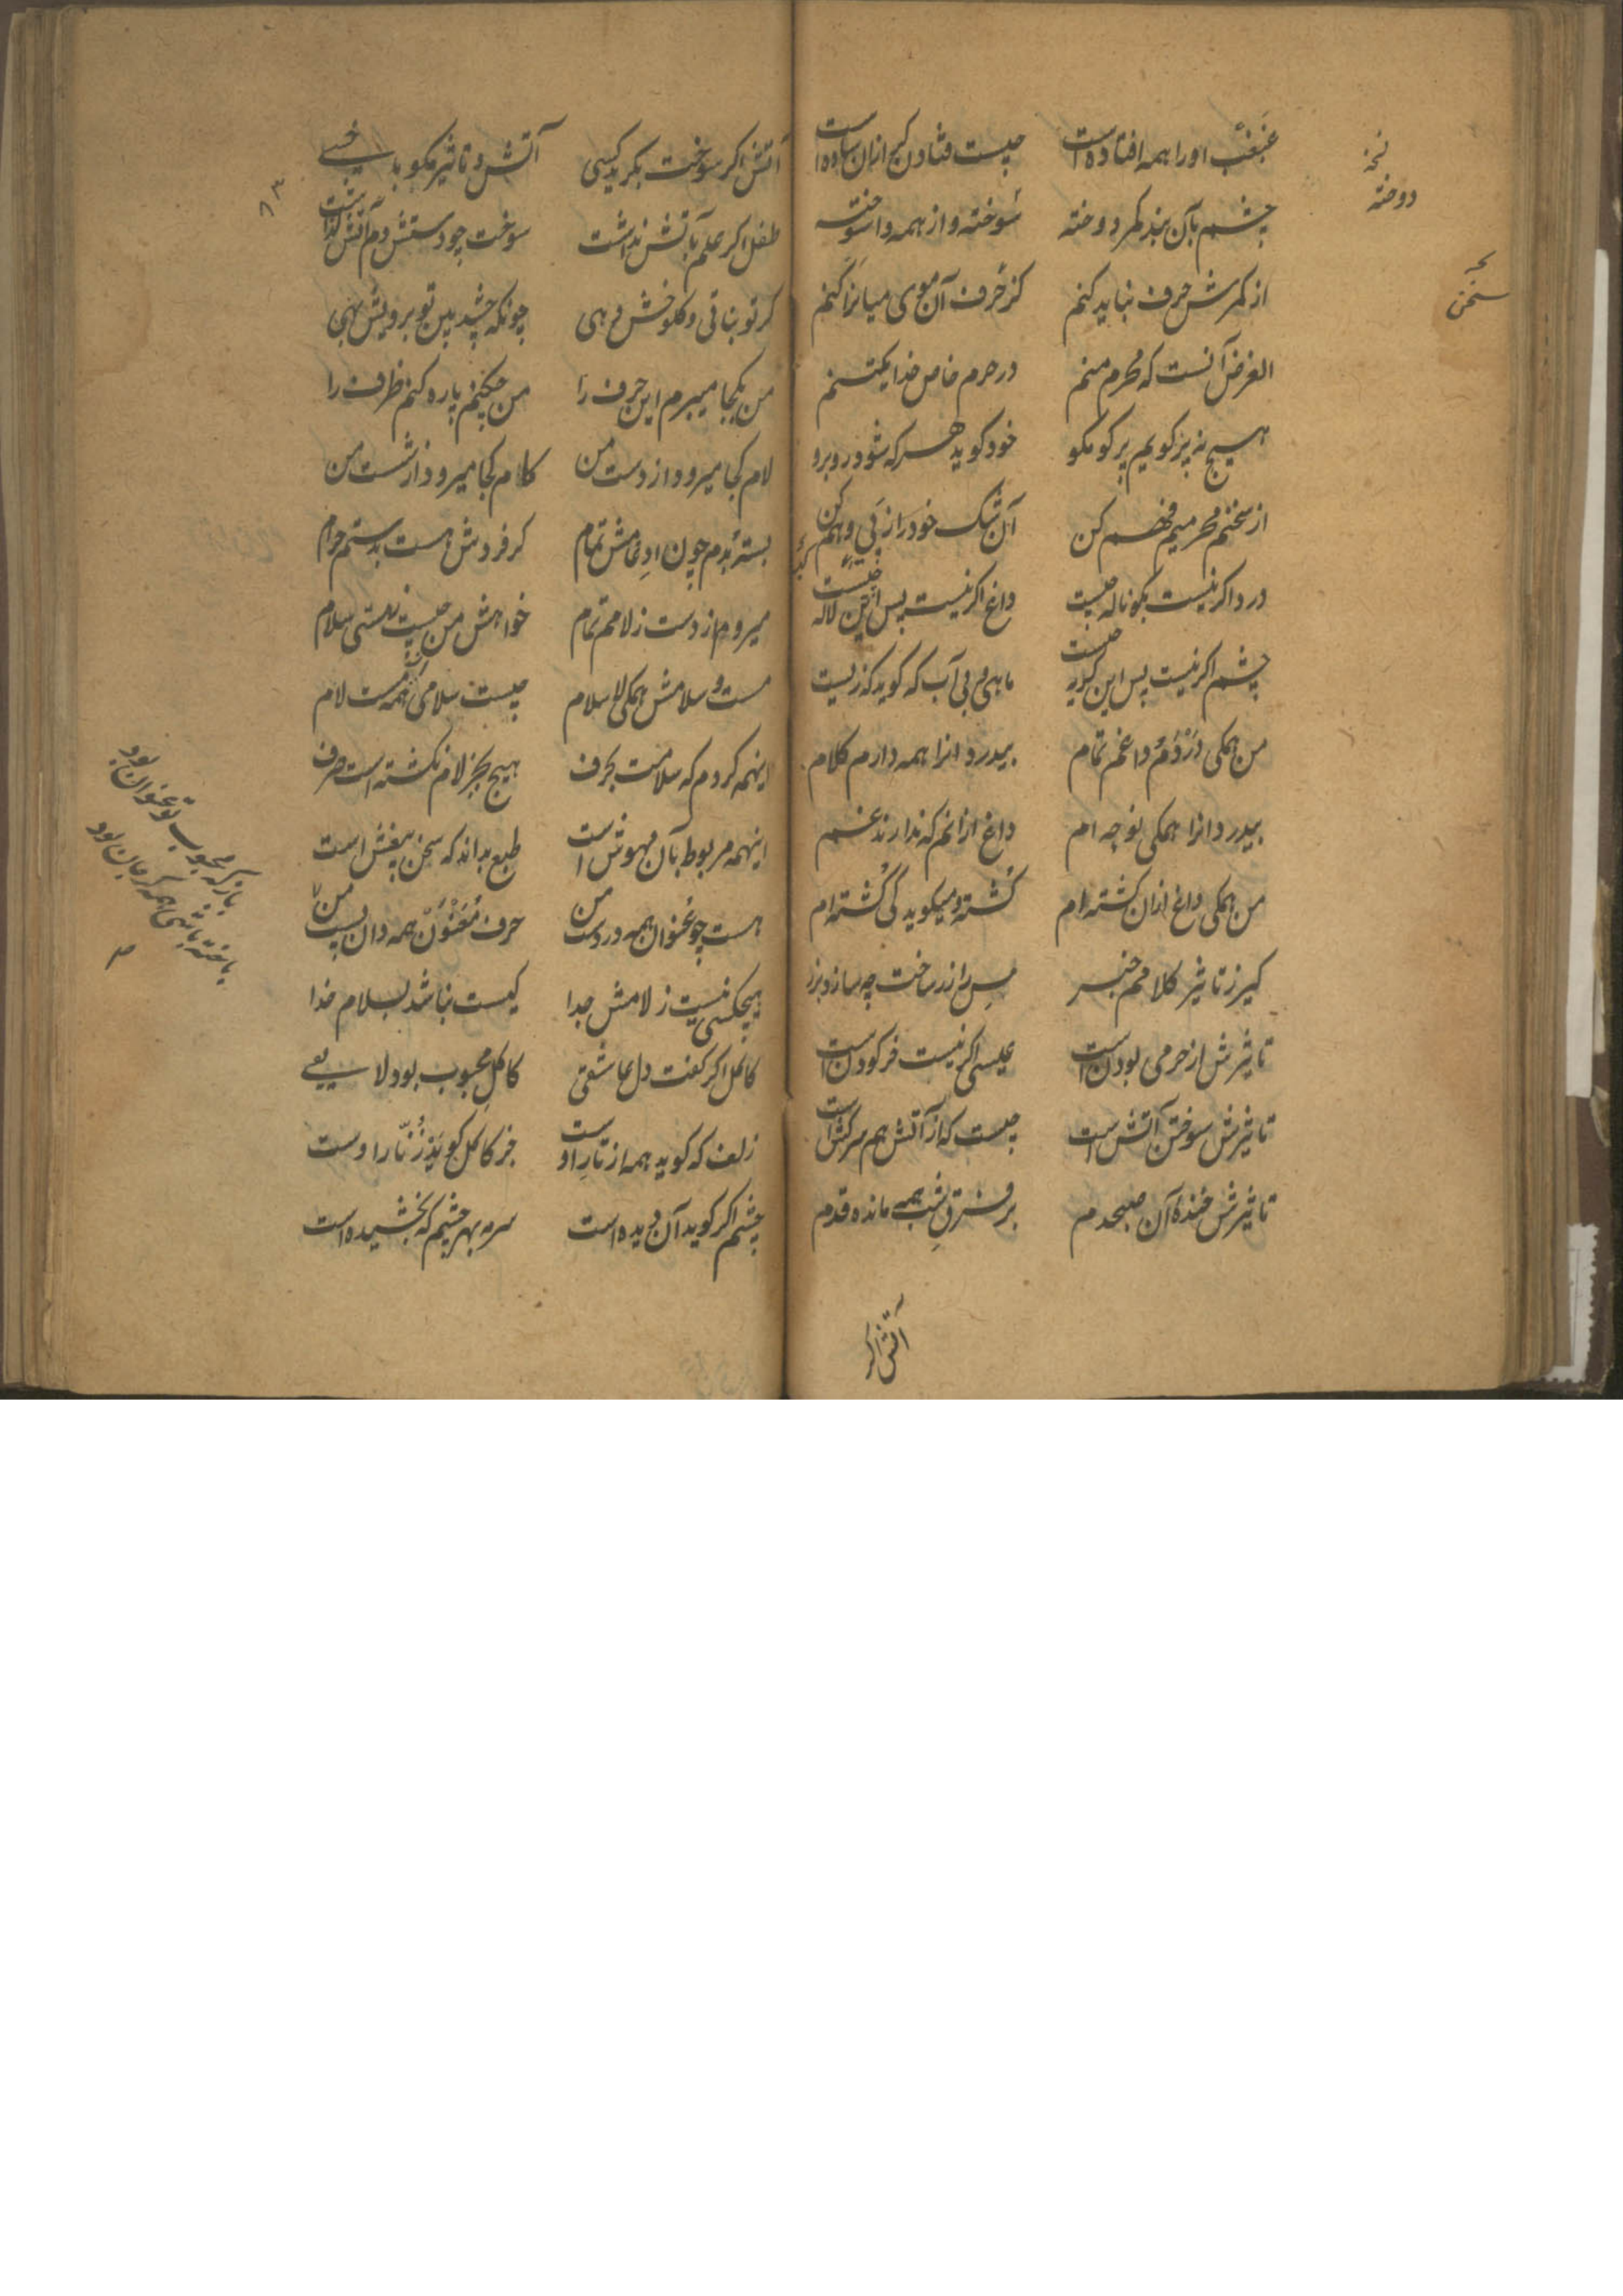 غبغب او را همه افتاده است چیست فتادن کج ازان ساده است
چشم بآن بند کمر دوخته سوخته و از همه وا سوخته
از کمرش حرف نباید کنم کز حرف آن موی میانرا کنم
الغرض آنست که محرم منم در حرم خاص خدا یکتنم
هیچ نه پر کویم پر کو مکو خود کوید هر که شود روبرو
از سخنم محرمیم فهم کن آن شک خود را ز پی وهم کن
درد اکر نیست بکو ناله چیست داغ اکر نیست پس این لاله چیست
چشم اکر نیست پس این کریه چیست ماهی بی آب که کوید که زیست
من همکی دردم و داغم تمام بیدردانرا همه دارم کلام
بیدردانرا همکی نوحه ام داغ ازانم که ندارند غم
من همکی داغ ازان کشته ام کشته و میکوید کی کشته ام
کیر ز تاثیر کلامم خبر مس را زر ساخت چه سازد بزر
تاثیرش از حرمی بودن است عیسی اکر نیست خر کودن است
تاثیرش سوختن آتش است چیست که از آتش هم سرکش است
تاثیرش خنده آن صبحدم بر فرق شب همه مانده قدم
آتش اکر
نسخه
دوخته
سخن
آتش اکر سوخت بکرید کسی آتش و تاثیر مکو با خسی
طفل اکر علم بآتش نداشت سوخت چو دستش دم آتش کذاشت
کر تو نباتی و کلو خش دهی چونکه چشد بین تو برویش بهی
من بکجا میبرم این حرف را من چکنم پاره کنم ظرف را
لام کجا میرود از دست من کلام کجا میرود از شست من
بسته بدم چون ادغامش تمام کر فردش هست بدستم حرام
میروم از دست ز لامم تمام خواهش من چیست نیستی سلام
مست و سلامش همکی لا سلام چیست سلامی همه مست لام
اینهمه کردم که سلامت بحرف هیچ بجز لام نکشته است صرف
اینهمه مربوط بآن مهوش است طبع بداند که سخن بیغش است
هست چو عنوان همه در دست من حرف معنون همه دان پست من
هیچکسی نیست ز لامش جدا کیست نباشد بسلام خدا
کاکل اکر کفت دل عاشقی کاکل محبوب بود لایقی
زلف که کوید همه از تار اوست جز کاکل کوید ز نار اوست
چشم اکر کوید آن دیده است سرمه بهر چشم که بخشیده است
۸۳
باز که محبوب تو عنوان بود